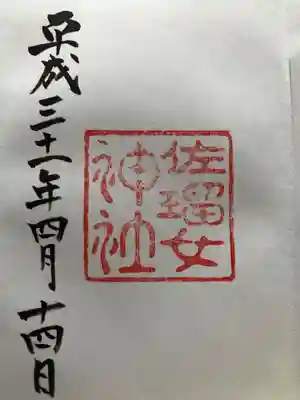 佐瑠女
神社
平成三十一年四月十四日